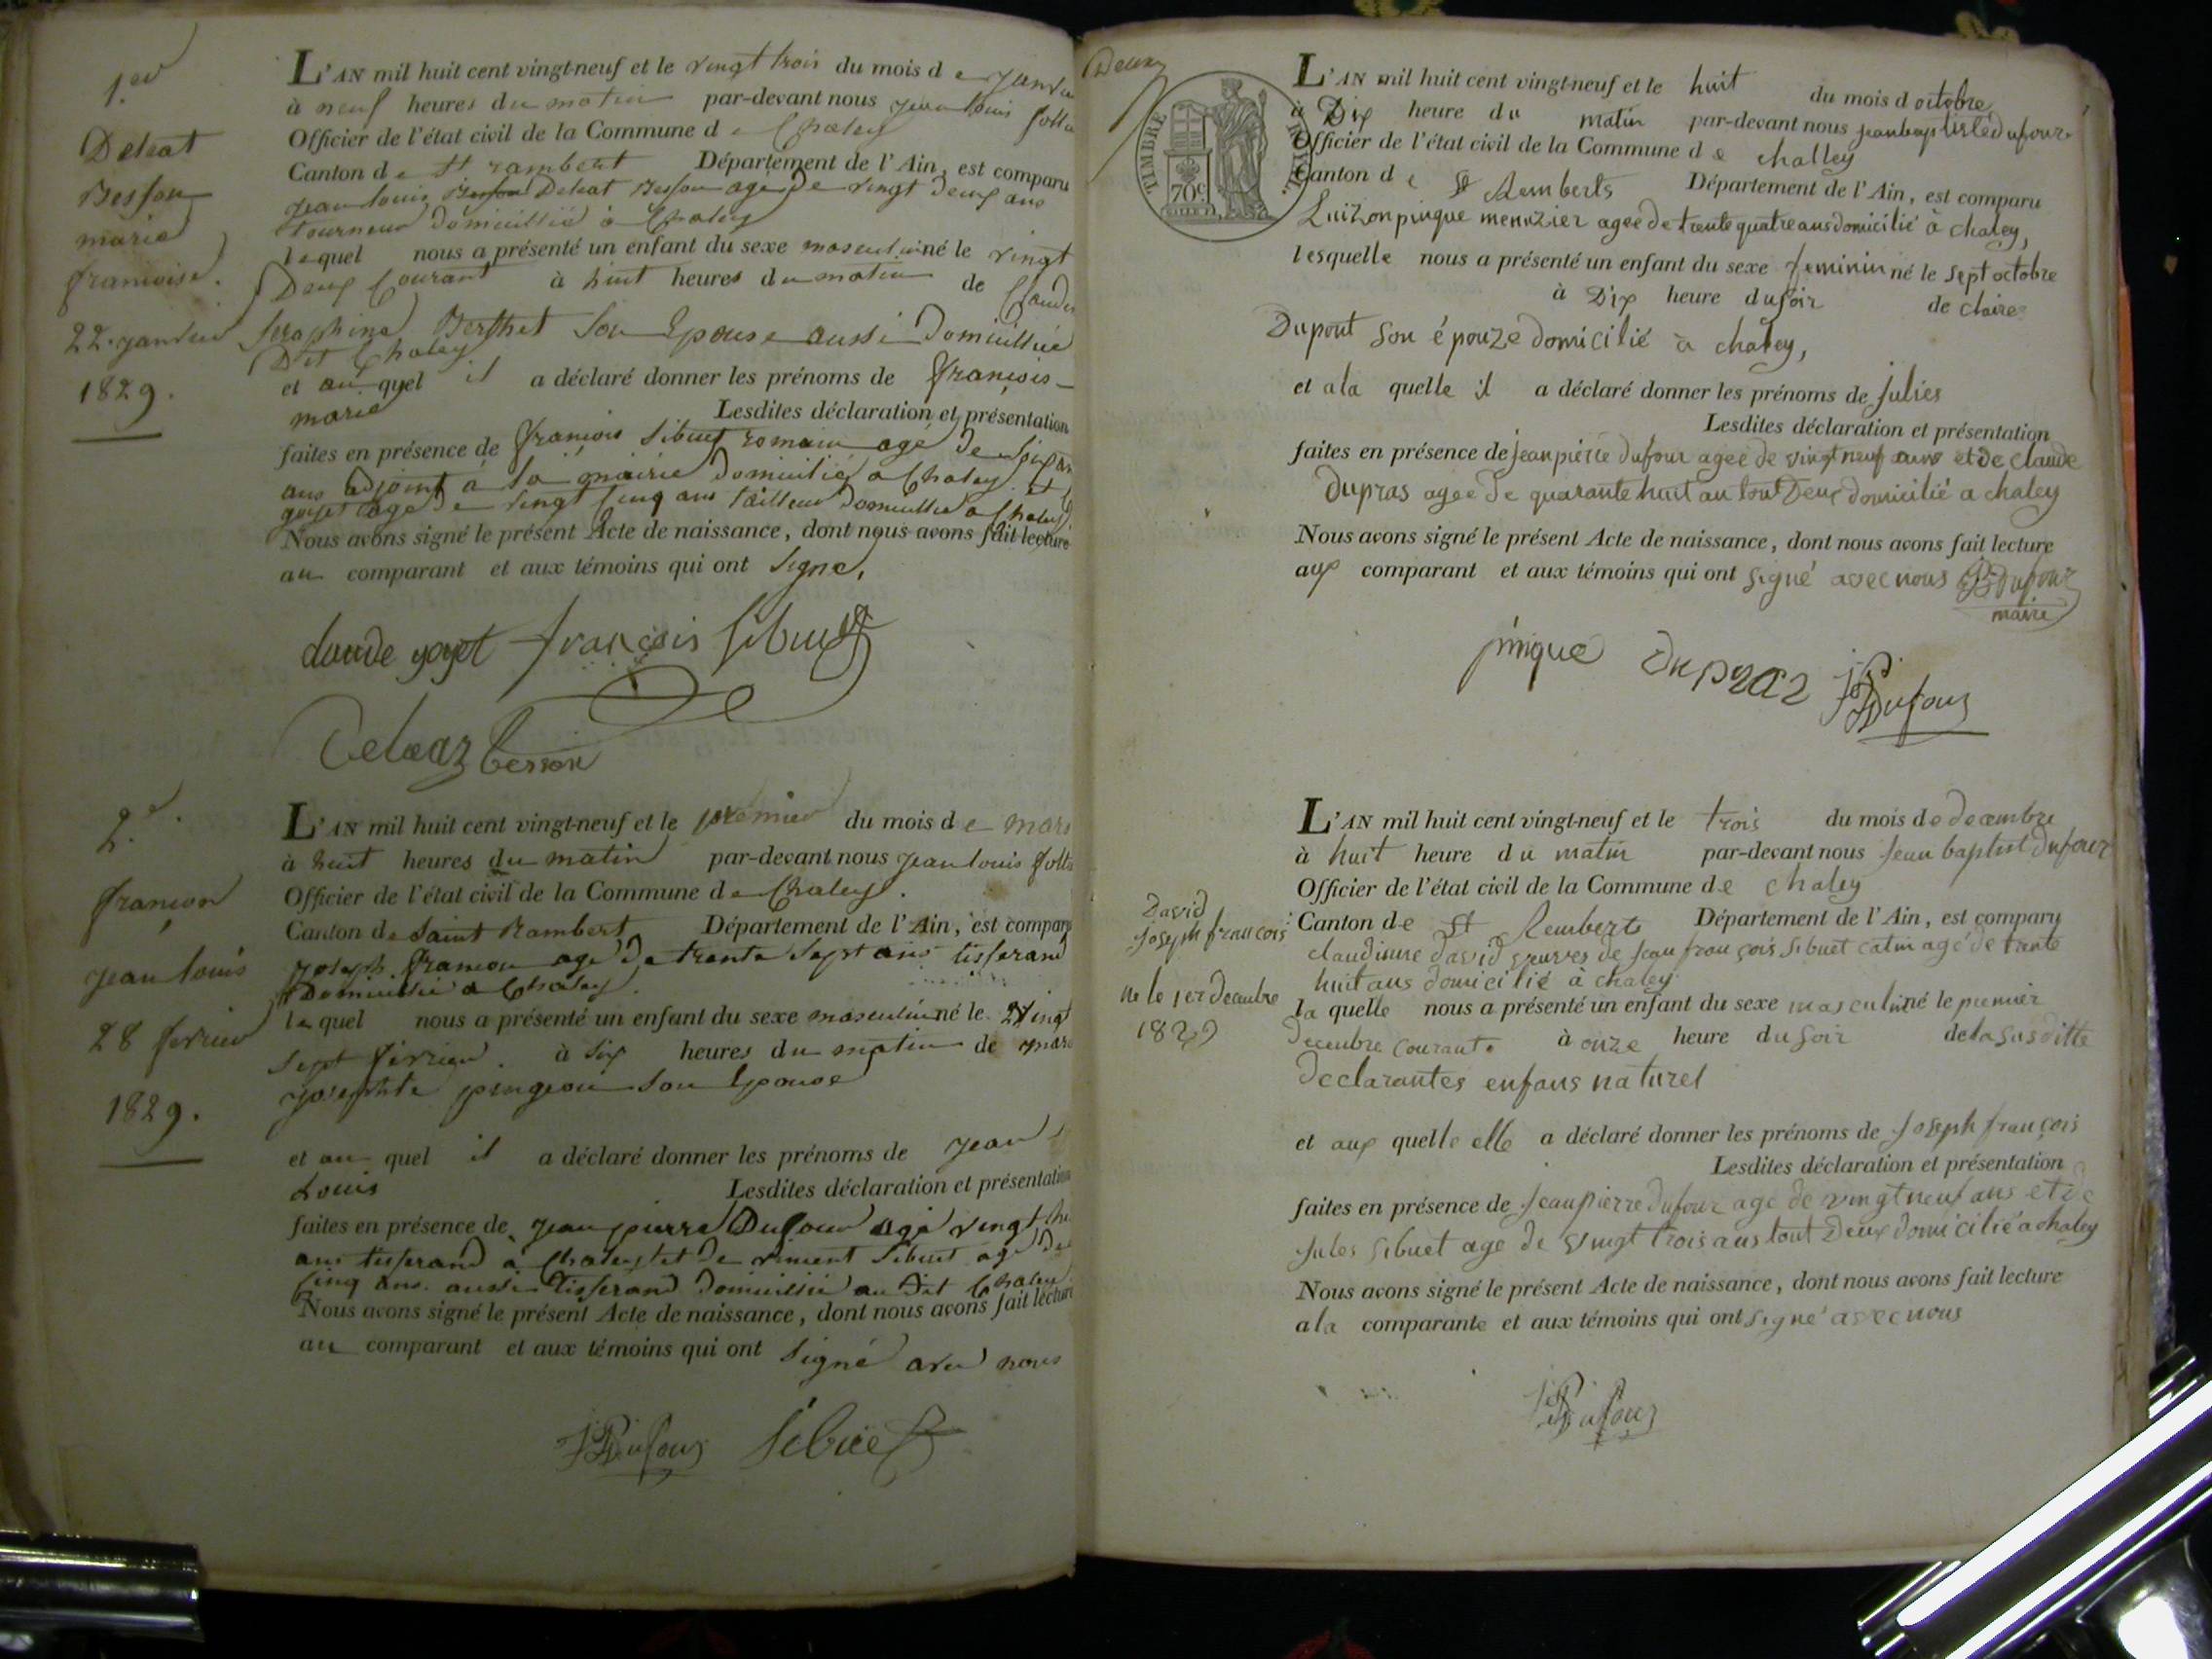 1.er
Deleat
Besson
marie
francoise.
22. janvier
1829.
L'AN mil huit cent vingt-neuf et le vingt trois du mois de
à neuf heures du matin par-devant nous jean louis
Officier de l'état civil de la Commune de Chaley
Canton de St rambert Département de l'Ain, est comparu
jean louis Deleat Besson age De vingt Deux ans
tourneur Domicillié à Chaley
lequel nous a présenté un enfant du sexe masculin né le vingt
Deux Courant à huit heures du matin de
Seraphine Berthet Son Epouse aussi Domicillié
Dit Chaley
et au quel il a déclaré donner les prénoms de françois
marie
Lesdites déclaration et présentation
faites en présence de françois Sibuet romain agé de
ans adjoint à la mairie Domicilié a Chaley et
goyet age De vingt Cinq ans tailleur Domicillié a Chaley.
Nous avons signé le présent Acte de naissance, dont nous avons fait lecture
au comparant et aux témoins qui ont Signé,
claude goyet françois Sibuet
Deleaz besson
2.e
françon
jean louis
28 fevrier
1829.
L'AN mil huit cent vingt-neuf et le premier du mois de mars
à huit heures du matin par-devant nous jean louis
Officier de l'état civil de la Commune de Chaley.
Canton de Saint Rambert Département de l'Ain, est comparu
joseph françon age De trente Sept ans tisserand
Domicillié a Chaley.
lequel nous a présenté un enfant du sexe masculin né le vingt
Sept fevrier. à Six heures du matin de
josephte pingeon Son Epouse
et au quel il a déclaré donner les prénoms de jean
Louis
Lesdites déclaration et présentation
faites en présence de jean pierre Dufour agé vingt
ans tisserand a Chaley et De vincent Sibuet age
Cinq ans. aussi tisserand Domicillié au Dit Chaley
Nous avons signé le présent Acte de naissance, dont nous avons fait lecture
au comparant et aux témoins qui ont Signé avec nous
JPDufour Sibuet
TIMBRE ROYAL.
70c
L'AN mil huit cent vingt-neuf et le huit du mois d octobre
à Dix heure du matin par-devant nous jean baptiste dufour
Officier de l'état civil de la Commune de challey
Canton de St Remberts Département de l'Ain, est comparu
Luizon pinque menuzier agee de trente quatre ans domicilié à chaley,
lesquelle nous a présenté un enfant du sexe feminin né le sept octobre
à Dix heure du soir de claire
Dupont son épouze domicilié à chaley,
et ala quelle il a déclaré donner les prénoms de julies
Lesdites déclaration et présentation
faites en présence de jean pierre dufour agee de vingt neuf ans et de claude
dupras agee de quarante huit an tout Deux domicilié a chaley
Nous avons signé le présent Acte de naissance, dont nous avons fait lecture
aux comparant et aux témoins qui ont signé avec nous JBDufour
maire
pinque Dupraz JPDufour
David
joseph francois
ne le 1er decembre
1829
L'AN mil huit cent vingt-neuf et le trois du mois de decembre
à huit heure du matin par-devant nous jean baptist dufour
Officier de l'état civil de la Commune de chaley
Canton de St Remberts Département de l'Ain, est compary
claudinne david veuves de jean françois sibuet catin agé de trante
huit ans domicilié à chaley
la quelle nous a présenté un enfant du sexe masculin né le premier
decembre courante à onze heure du soir de la susditte
declarantes enfans naturel
et aux quelle elle a déclaré donner les prénoms de joseph françois
Lesdites déclaration et présentation
faites en présence de jean pierre dufour age de vingt neuf ans et de
jules sibuet age de vingt trois ans tout Deux domicilié a chaley
Nous avons signé le présent Acte de naissance, dont nous avons fait lecture
a la comparante et aux témoins qui ont signé avec nous
JPDufour